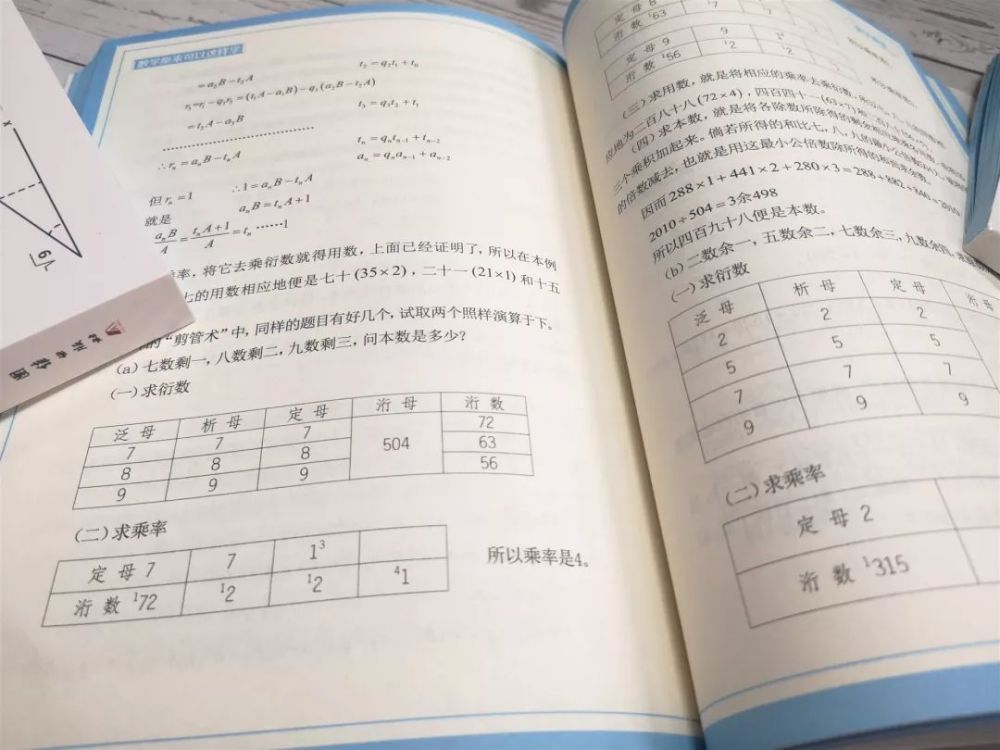 数学原来可以这样学
=a₂B−t₂A
t₂=q₂t₁+t₀
r₃=r₁−q₃r₂=(t₁A−a₁B)−q₃(a₂B−t₂A)
=t₃A−a₃B
t₃=q₃t₂+t₁
∴rₙ=aₙB−tₙA
tₙ=qₙtₙ₋₁+tₙ₋₂
aₙ=qₙaₙ₋₁+aₙ₋₂
但rₙ=1
∴1=aₙB−tₙA
就是
aₙB=tₙA+1
aₙB/A=(tₙA+1)/A=tₙ……1
率，将它去乘衍数就得用数，上面已经证明了，所以在本例
七的用数相应地便是七十(35×2)，二十一(21×1)和十五
的“剪管术”中，同样的题目有好几个，试取两个照样演算于下。
(a)七数剩一，八数剩二，九数剩三，问本数是多少？
(一)求衍数
泛母 析母 定母 洐母 洐数
7 7 7 504 72
8 8 8 63
9 9 9 56
(二)求乘率
定母7 7 1³
洐数¹72 ¹2 ¹2 ⁴1
所以乘率是4。
定母8 8
洐数¹63 ¹7
定母9 9
洐数¹56 ¹2 ¹2
(三)求用数，就是将相应的乘率去乘衍数，
应地为二百八十八(72×4)，四百四十一(63×7)
(四)求本数，就是将各除数所除得的剩余
三个乘积加起来。倘若所得的和比七，八，九的最小公倍数
的倍数减去，也就是用这最小公倍数除所得的和
因而288×1+441×2+280×3=288+882+840=2010
2010÷504=3余498
所以四百九十八便是本数。
(b)二数余一，五数余二，七数余三，九数余四，
(一)求衍数
泛母 析母 定母
2 2 2
5 5 5
7 7 7
9 9 9
(二)求乘率
定母2
洐数¹315